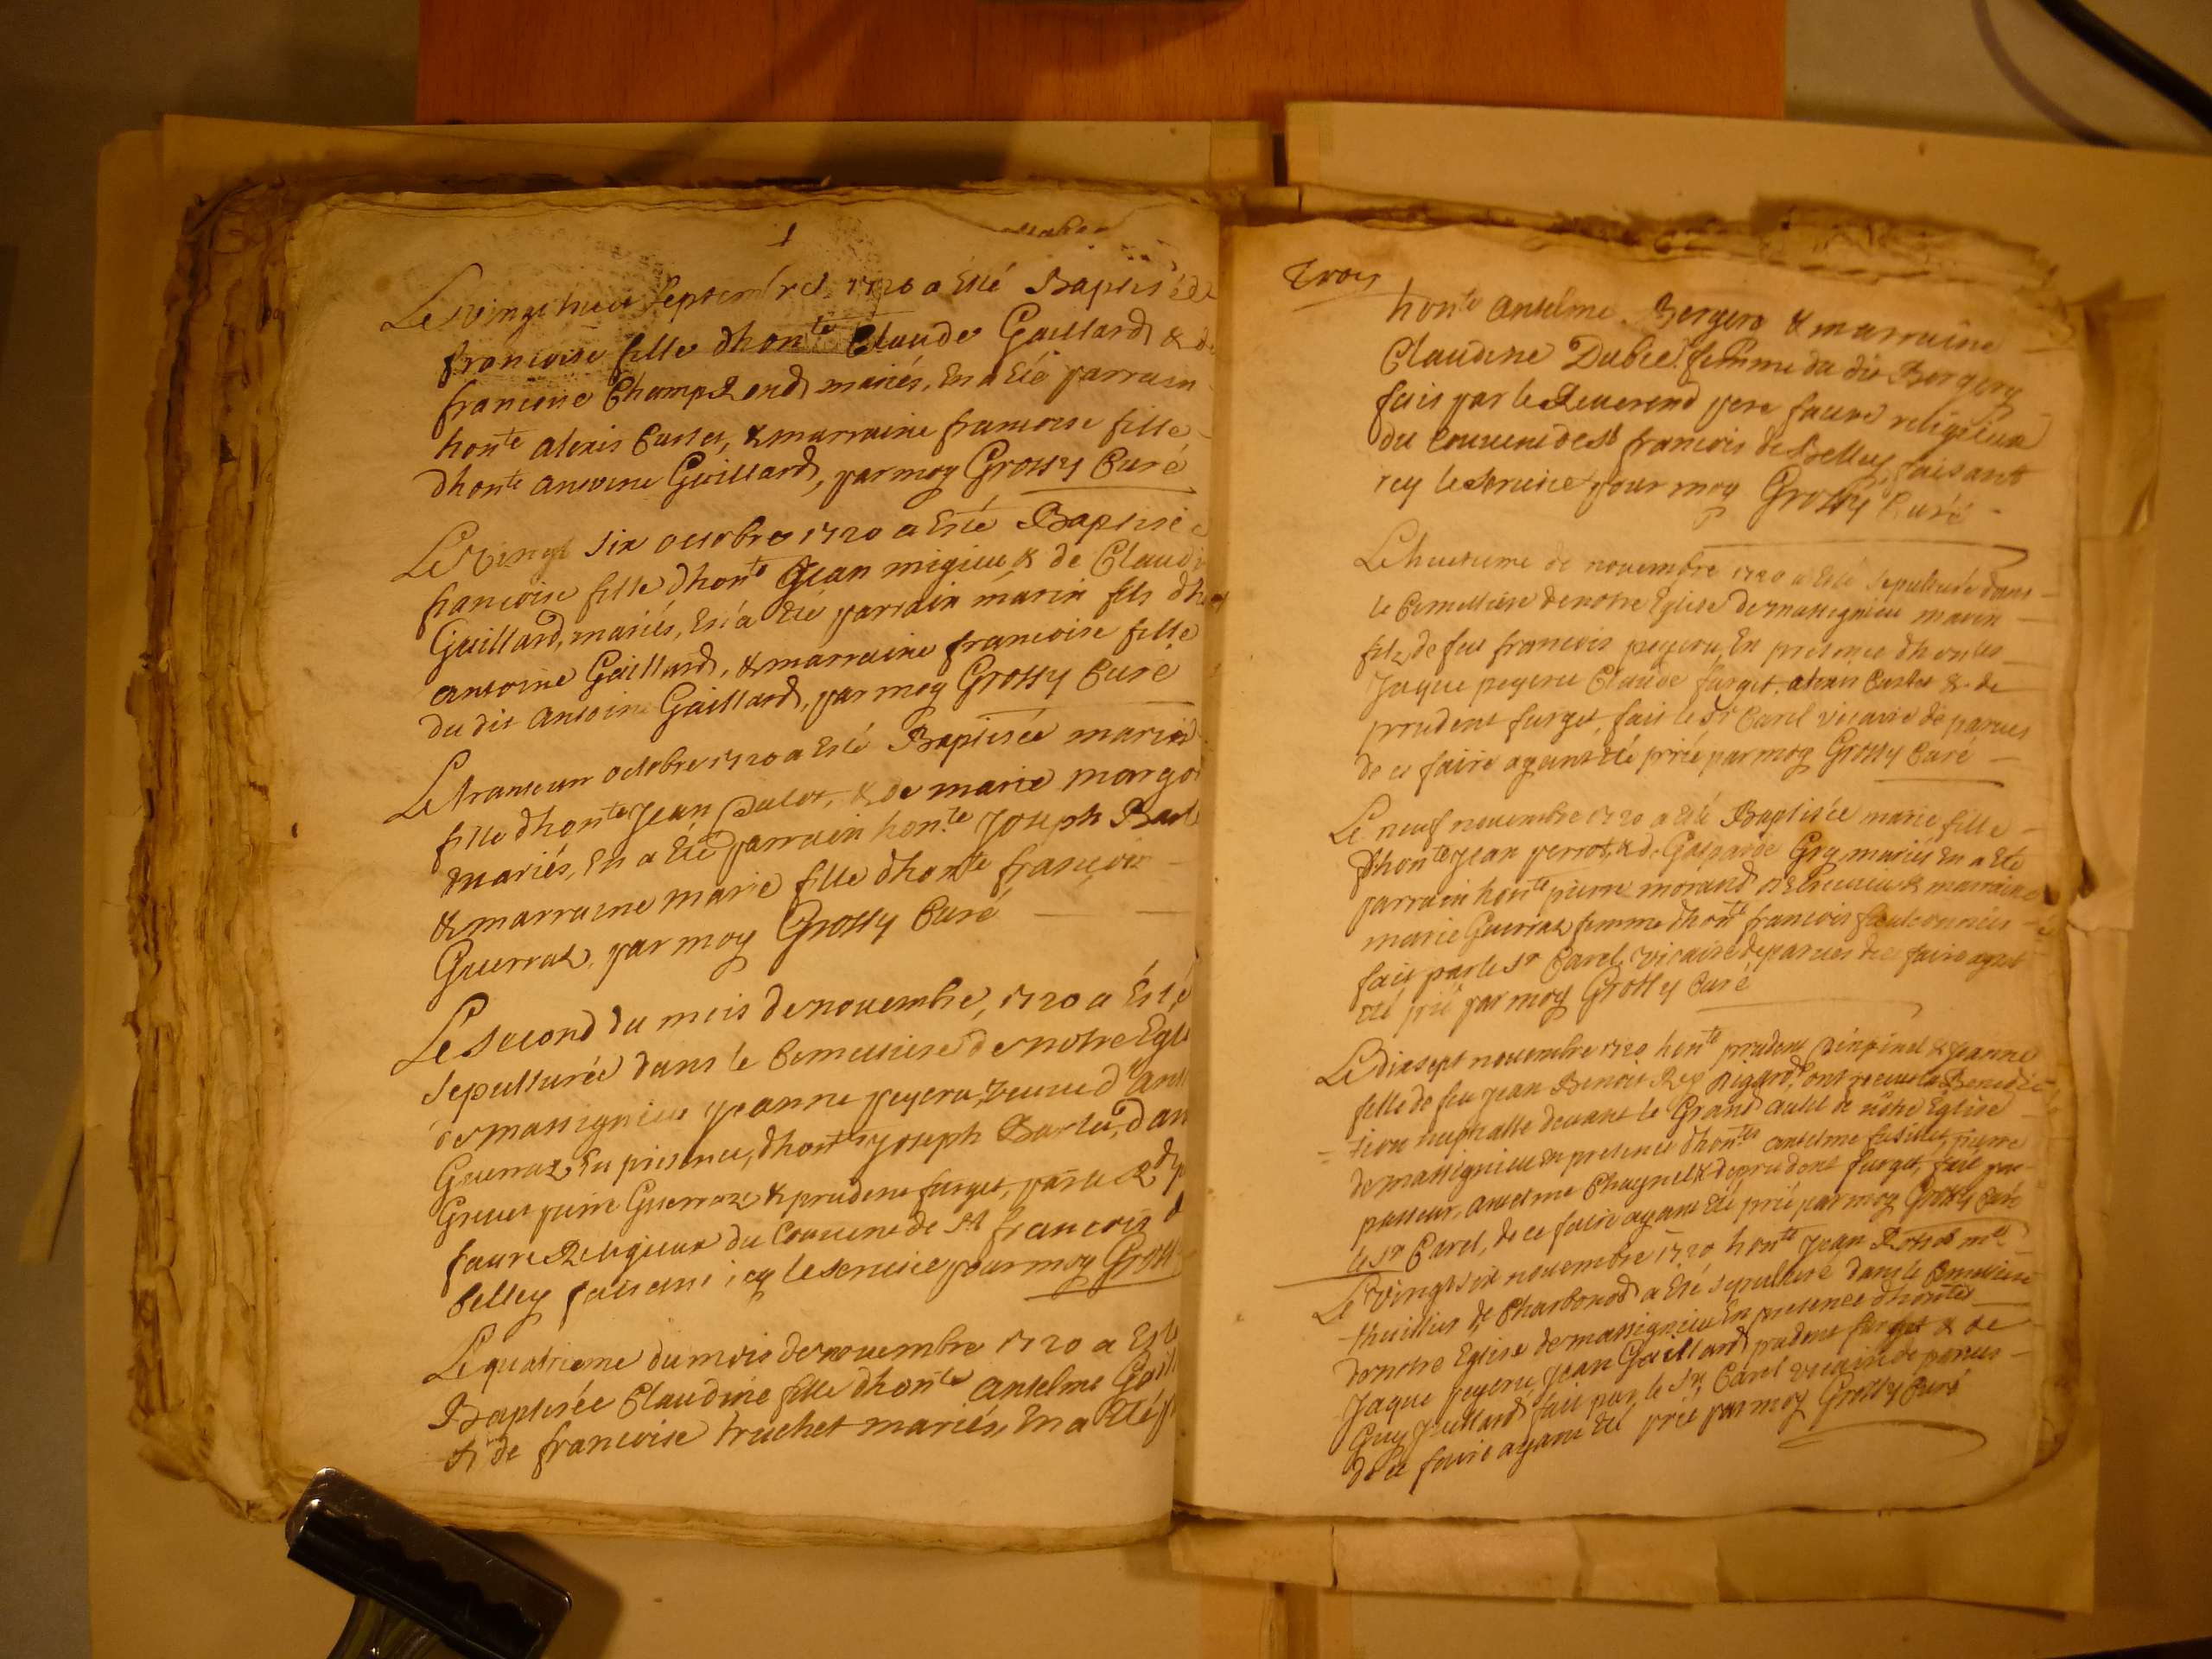 Le vingt huit septembre 1720 a Esté Baptisée
francoise fille dhonte Claude Gaillard & de
francoise Champ mariés, En a Eté parrain
honte alexis Custet, & marraine francoise fille
dhonte antoine Gaillard, par moy Grossy Curé
Le Vingt six octobre 1720 a Esté Baptisée
francoise fille dhonte Jean migieu & de Claudi
Gaillard, mariés, En a Eté parrain marin fils dh
antoine Gaillard, & marraine francoise fille
du dit antoine Gaillard, par moy Grossy Curé
Le trante un octobre 1720 a Esté Baptisée marie
fille dhonte Jean & de marie margo
mariés, En a Eté parrain honte Joseph Barl
& marraine marie fille dhonte francois
Guerraz, par moy Grossy Curé
Le second du mois de novembre, 1720 a Esté
sepulturée dans le Cemetiere de notre Egli
de massignieu Jeanne peyeru, veuve d'ant
Guerraz En presence, dhontes Joseph Barlet, dan
pierre Guerraz & prudent furget, par le Rd p
faure Religieux du Couvent de St francois d
Belley faisant icy le service pour moy Gross
Le quatrieme du mois de novembre 1720 a Esté
Baptisée Claudine fille dhonte anselme Gail
& de francoise truchet mariés, En a Eté p
Trois
honte anselme Bergere & marraine
Claudine Dubie femme du dit Bergere
fait par le Reuerend pere faure religieux
du Couvent de St francois de Belley faisant
icy le service pour moy Grossy Curé
Le huitieme de novembre 1720 a Esté sepulturé dans
le Cemetiere de notre Eglise de massignieu marin
filz de feu francois peyeru, En presence dhontes
Jaque peyeru Claude furget, alexis Custet & de
prudent furget, fait le Sr Carel vicaire de parves
de ce faire ayant Eté prié par moy Grossy Curé
Le neuf novembre 1720 a Eté Baptisée marie fille
dhonte Jean perrot, & de Gasparde Gry mariés En a Eté
parrain honte pierre morand & marraine
marie Guerraz femme dhonte francois
fait par le Sr Carel, vicaire de parves de ce faire ayant
Eté prié par moy Grossy Curé
Le dix sept novembre 1720 honte prudent & Jeanne
fille de feu Jean Benoit Rey ont receu la Benedic
tion nuptialle devant le Grand autel de notre Eglise
de massignieu en presence dhontes anselme pierre
passeur, anselme Chaynel & de prudent furget, fait par
le Sr Carel, de ce faire ayant Eté prié par moy Grossy Curé
Le Vingt six novembre 1720 honte Jean
de Charbonod a Eté sepulturé dans le Cemetiere
de notre Eglise de massignieu En presence dhontes
Jaque peyeru Jean Gaillard prudent furget & de
Guy Juillard fait par le Sr Carel vicaire de parves
de ce faire ayant Eté prié par moy Grossy Curé